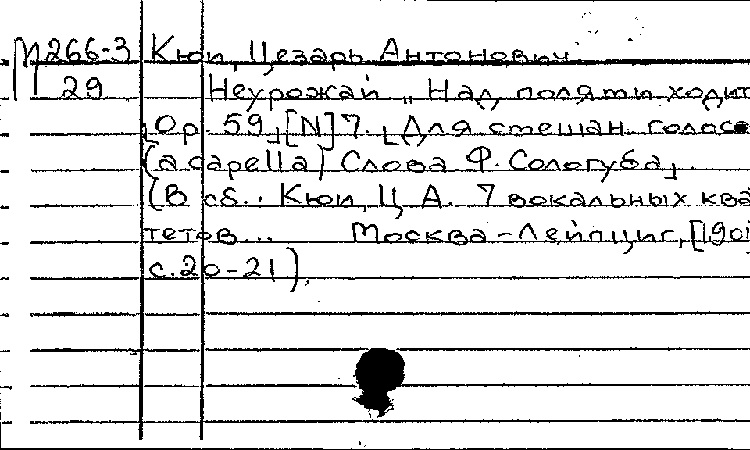 М266-3 Кюи, Цезарь Антонович.
29 Неурожай „Над полями ходит
Ор. 59, [N] 7. Для смешан. голосо
(a capella) Слова Ф. Сологуба,
(В сб.: Кюи, Ц. А. 7 вокальных ква
тетов... Москва-Лейпциг, [190
с. 20-21).